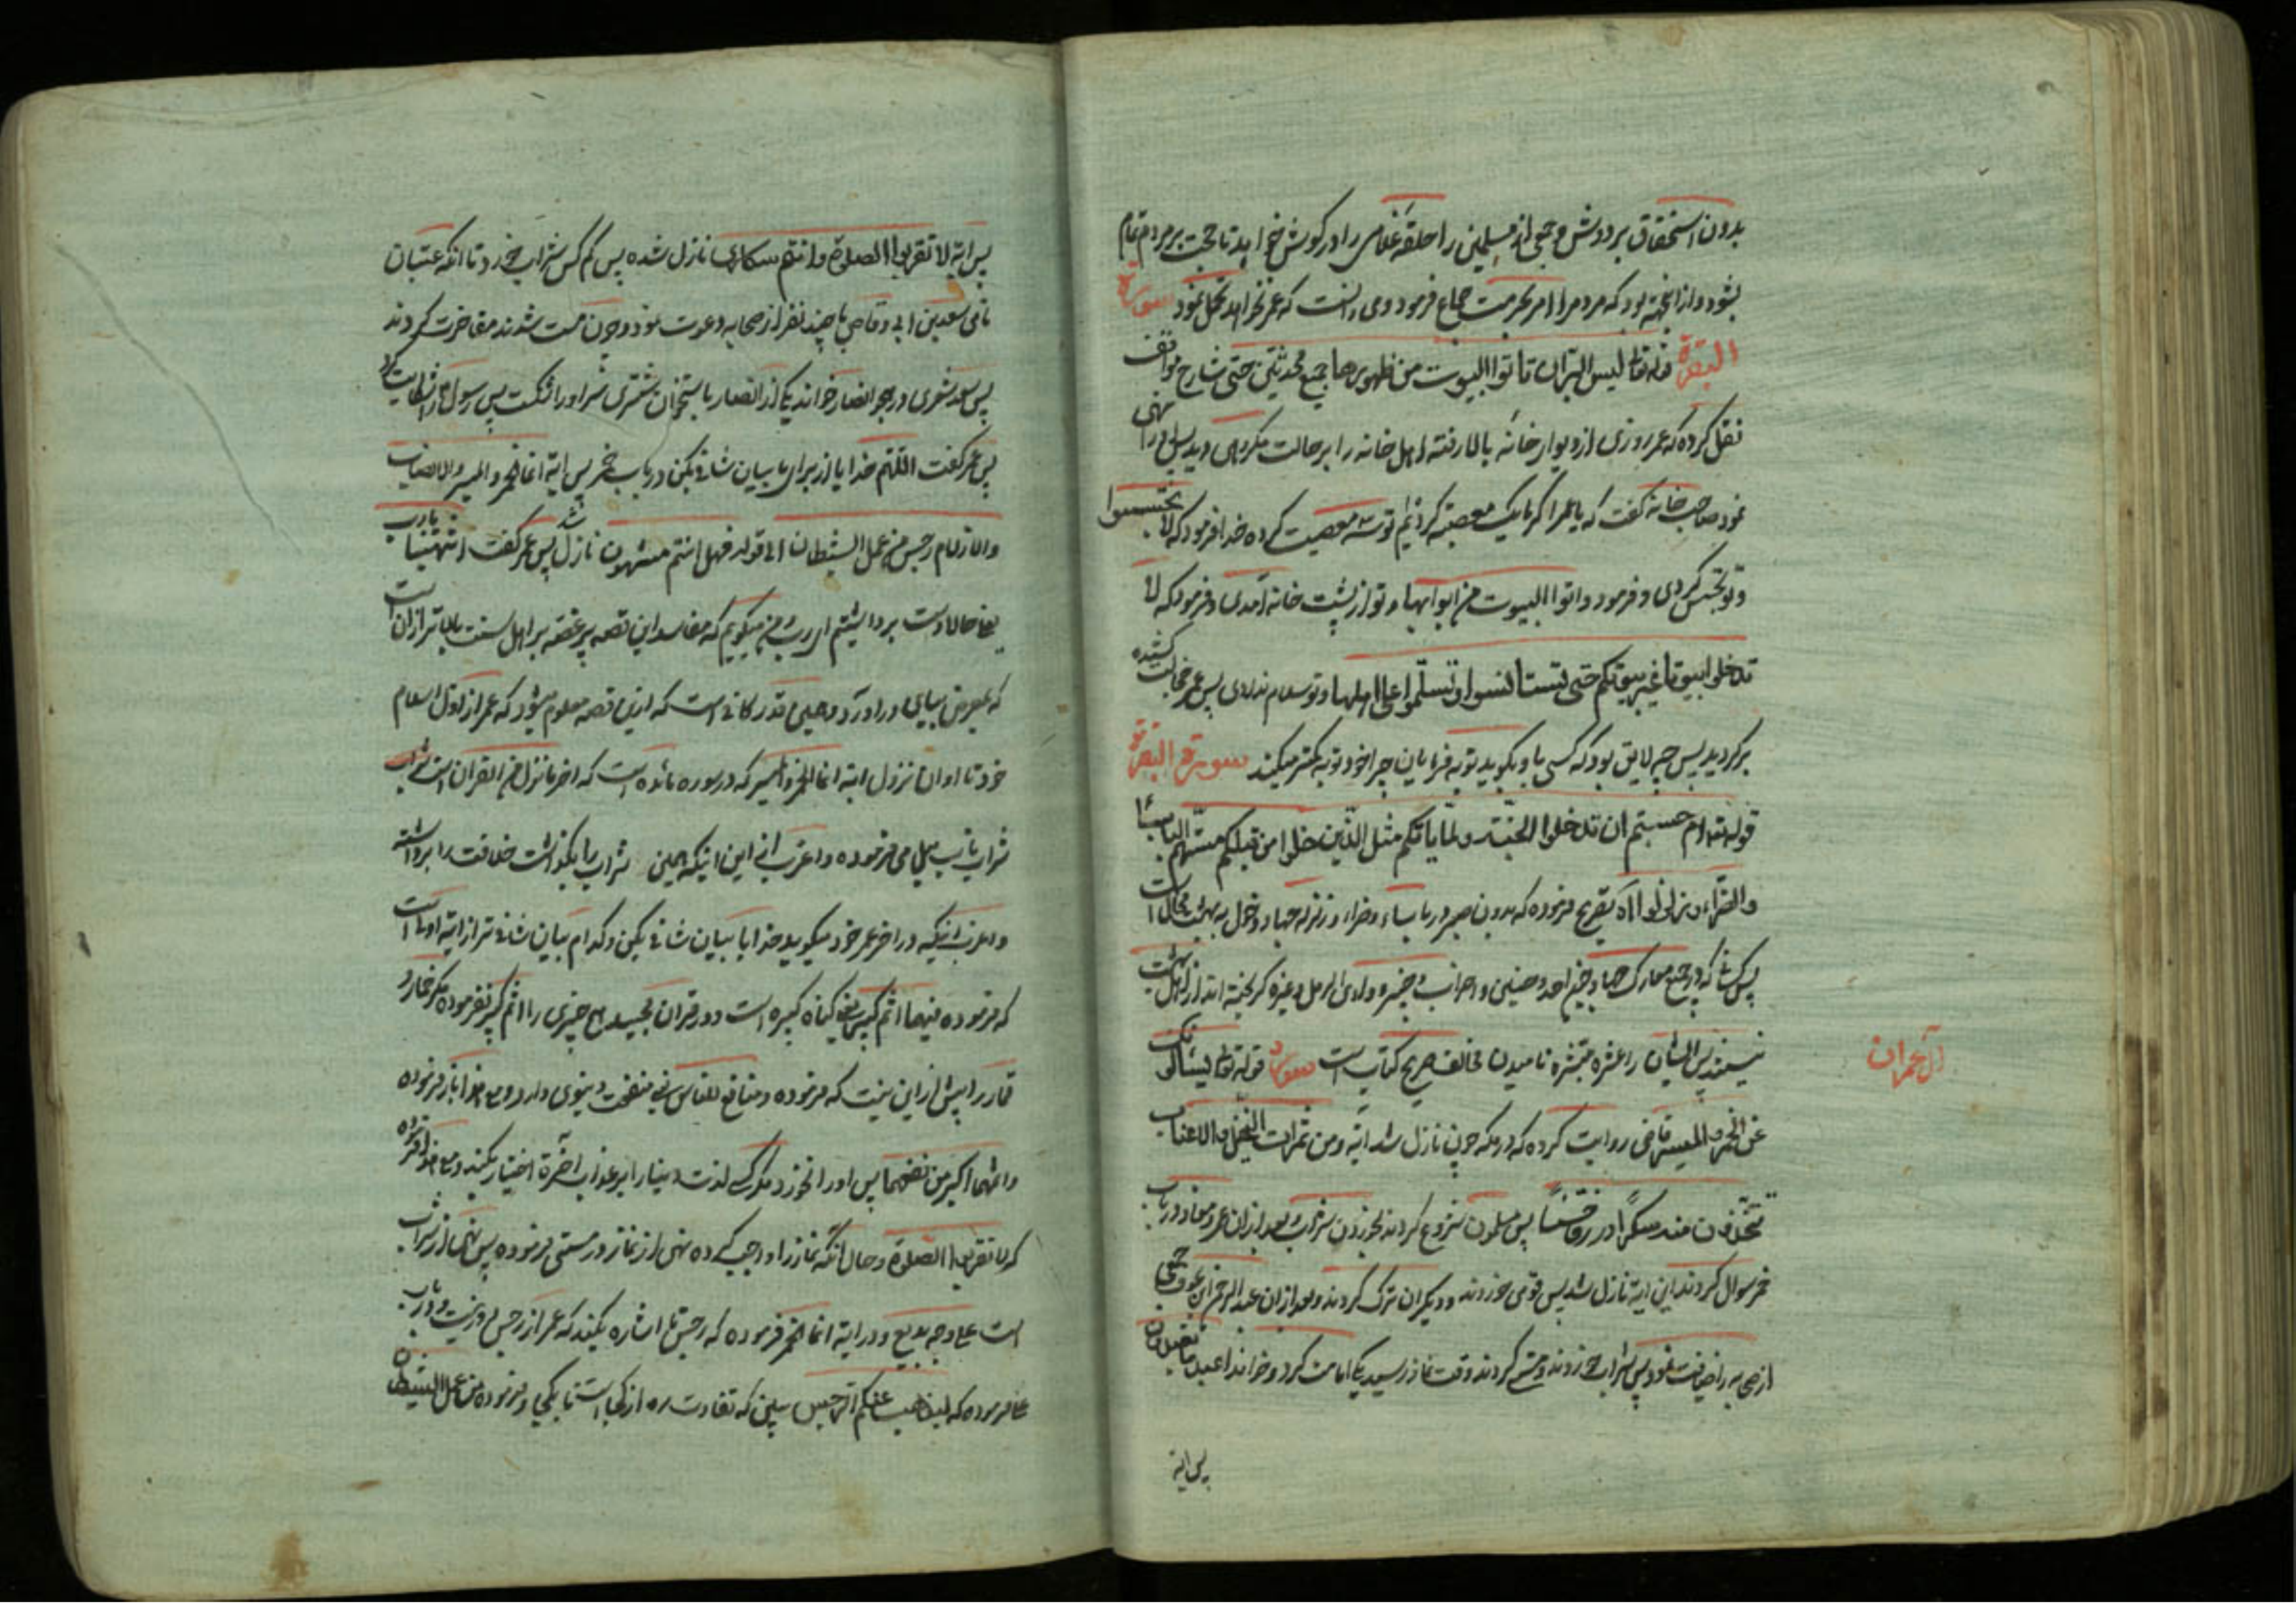 بدون استحقاق بر دوش و جمعی از مسلمین را حلقه غلامی را در کوش خواهد تا حجت بر مردم تمام
بشود و از انجهه بود که مردم را امر بحرمت جماع فرمود و می دانست که عمر نخواهد تحمل نمود سورة
البقرة قوله تعالی لیس البر ان تاتوا البیوت من ظهورها جمیع محدثین حتی شارح مواقف
نقل کرده که عمر روزی از دیوار خانهٔ بالا رفته اهل خانه را بر حالت مکروهی دید پس نهی
نمود صاحب خانه گفت که یا عمر اگر ما یک معصیة کردیم تو سه معصیت کرده خدا فرمود که لا تجسسوا
و تو تجسس کردی و فرمود واتوا البیوت من ابوابها و تو از پشت خانه آمدی و فرمود که لا
تدخلوا بیوتا غیر بیوتکم حتی تستانسوا و تسلموا علی اهلها و تو سلام ندادی پس عمر خجالت کشیده
برگردید پس چه لایق بود که کسی باو بگوید توبه فرمایان چرا خود توبه کمتر میکنند سورة البقرة
قوله تعالی ام حسبتم ان تدخلوا الجنة ولما یاتکم مثل الذین خلوا من قبلکم مستهم الباساء
والضراء وزلزلوا الایه تصریح فرموده که بدون صبر در باساء و ضراء و زلزله جهاد دخول به بهشت محال است
پس کسانی که در جمیع معارک جهاد احد و حنین و احزاب و خیبر و وادی الرمل و غیره گریخته اند از اهل بهشت
نیستند پس ایشان را عشره مبشره نامیدن مخالف صریح کتاب است سورة قوله تعالی یسئلونک
آل عمران
عن الخمر والمیسر قاضی روایت کرده که در مکه چون نازل شد آیه ومن ثمرات النخیل والاعناب
تتخذون منه سکرا ورزقا حسنا پس مسلمون شروع کردند بخوردن شراب و بعد از ان عمر و معاذ در باب
خمر سوال کردند این ایه نازل شد پس قومی خوردند و دیگران ترک کردند و بعد از ان عبد الرحمن بن عوف جمعی
از صحابه را ضیافت نمود پس شراب خوردند و مست کردند وقت نماز رسید یکی امامت کرد و خواند اعبد ما تعبدون
پس ایه
پس ایه لا تقربوا الصلوة وانتم سکاری نازل شده پس کم کس شراب خورد تا انکه عتبان
نامی سعد بن ابی وقاص با چند نفر از صحابه دعوت نمود و چون مست شدند مفاخرت کردند
پس سعد شعری در هجو انصار خواند یکی از انصار با ستخوان شتری سر او را شکست پس رسول را شکایت کرد
پس عمر گفت اللهم خدایا از برای ما بیان شافی بکن در باب خمر پس ایه انما الخمر والمیسر والانصاب
والازلام رجس من عمل الشیطان الی قوله فهل انتم منتهون نازل شد پس عمر گفت انتهینا یا رب
یعنی حالا دست برداشتیم ای رب من میگویم که مفاسد این قصه پر غصه بر اهل سنت بالاتر از ان است
که بعرض بیان در او در آورد و همین قدر کافی است که ازین قصه معلوم میشود که عمر از اول اسلام
خود تا اوان نزول ایه انما الخمر والمیسر که در سوره مائده است که اخر ما نزل من القرآن است شراب
شراب ناب میل می فرموده و اغرب از این اینکه همین شراب را بگذاشت خلافت را برداشته
و اغرب اینکه در اخر عمر خود میگوید خدایا بیان شافی بکن و کدام بیان شافی تر از ایه اولی است
که فرموده فیهما اثم کبیر یعنی گناه کبیره است و در قرآن مجید هیچ چیزی را اثم کبیر نفرموده مگر خمار و
قمار را پیش از این نیست که فرموده و منافع للناس یعنی منفعت دنیوی دارد و مع هذا باز فرموده
واثمهما اکبر من نفعهما پس او را نخورد مگر که لذت دنیا را بر عذاب اخرة اختیار بکند و مع هذا فرموده
که لا تقربوا الصلوة و حال انکه نماز را واجب کرده نهی از نماز در مستی فرموده پس نهی از شراب
است علی وجه بدیع و در ایه انما الخمر فرموده که رجس تا اشاره بکند که عمر از رجس دور نیست و در باب
علی فرموده که لیذهب عنکم الرجس ببین که تفاوت ره از کجا است تا بکجا و فرموده من عمل الشیطان